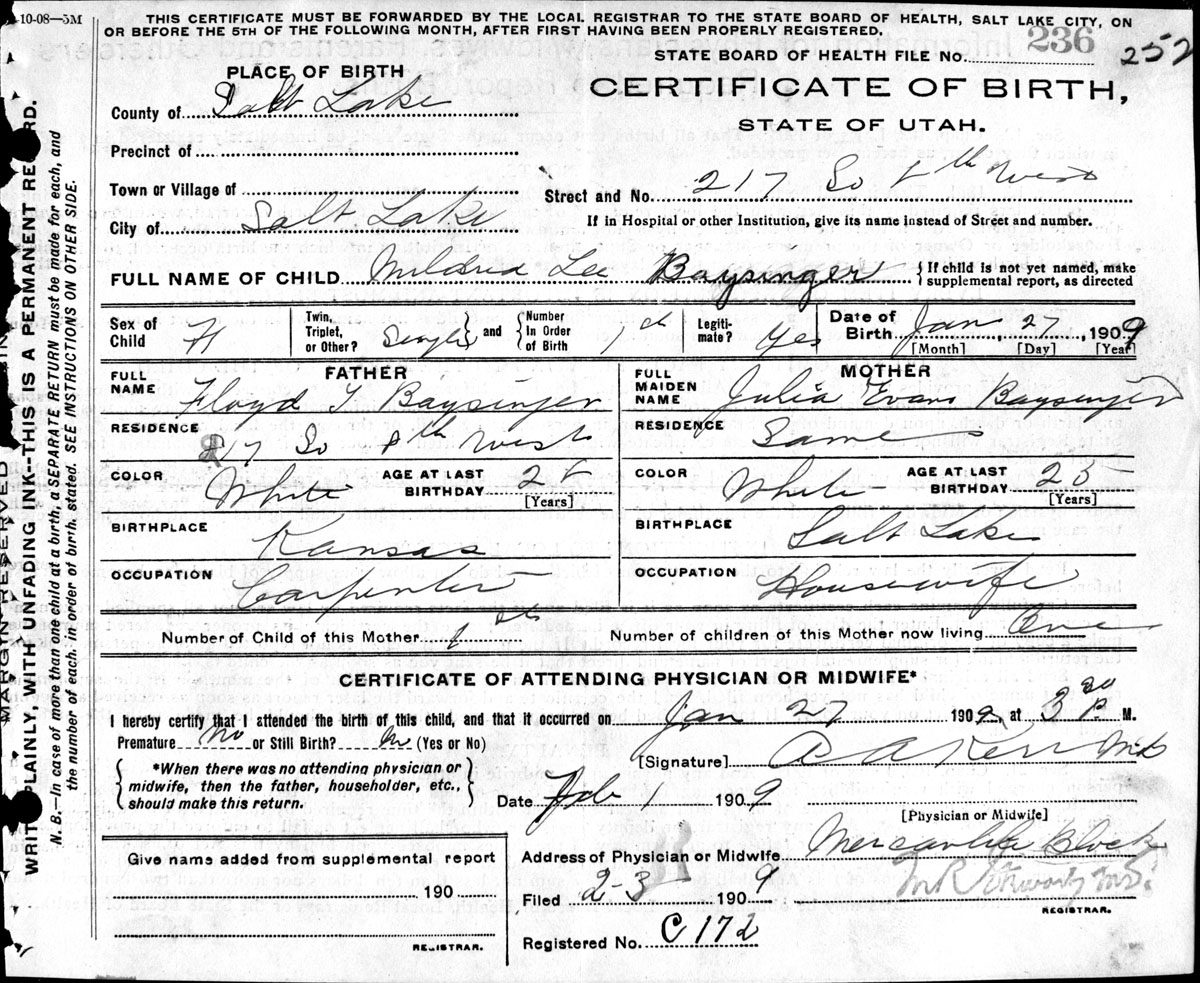 -10-08-5M
THIS CERTIFICATE MUST BE FORWARDED BY THE LOCAL REGISTRAR TO THE STATE BOARD OF HEALTH, SALT LAKE CITY, ON
OR BEFORE THE 5TH OF THE FOLLOWING MONTH, AFTER FIRST HAVING BEEN PROPERLY REGISTERED.
236
STATE BOARD OF HEALTH FILE No. 252
PLACE OF BIRTH
CERTIFICATE OF BIRTH,
STATE OF UTAH.
County of Salt Lake
Precinct of
Town or Village of
Street and No. 217 So 8th West
City of Salt Lake
If in Hospital or other Institution, give its name instead of Street and number.
FULL NAME OF CHILD Mildred Lee Baysinger
{If child is not yet named, make supplemental report, as directed
Sex of Child F
Twin, Triplet, or Other? Single and Number In Order of Birth 1st
Legitimate? Yes
Date of Birth Jan 27, 1909
[Month] [Day] [Year]
FATHER
FULL NAME Floyd T Baysinger
RESIDENCE 217 So 8th West
COLOR White AGE AT LAST BIRTHDAY
[Years]
BIRTHPLACE Kansas
OCCUPATION Carpenter
MOTHER
FULL MAIDEN NAME Julia Evans Baysinger
RESIDENCE Same
COLOR White AGE AT LAST BIRTHDAY 25
[Years]
BIRTHPLACE Salt Lake
OCCUPATION Housewife
Number of Child of this Mother 1st Number of children of this Mother now living One
CERTIFICATE OF ATTENDING PHYSICIAN OR MIDWIFE*
I hereby certify that I attended the birth of this child, and that it occurred on Jan 27 1909, at 3 30 P. M.
Premature No or Still Birth? No (Yes or No)
[Signature] A A Kerr MD
{*When there was no attending physician or midwife, then the father, householder, etc., should make this return.}
Date Feb 1 1909
[Physician or Midwife]
Address of Physician or Midwife Mercantile Block
Give name added from supplemental report
190
REGISTRAR.
Filed 2-3 1909
REGISTRAR.
Registered No. C 172
MARGIN RESERVED
WRITE PLAINLY, WITH UNFADING INK--THIS IS A PERMANENT RECORD.
N. B.—In case of more than one child at a birth, a SEPARATE RETURN must be made for each, and
the number of each, in order of birth, stated. SEE INSTRUCTIONS ON OTHER SIDE.